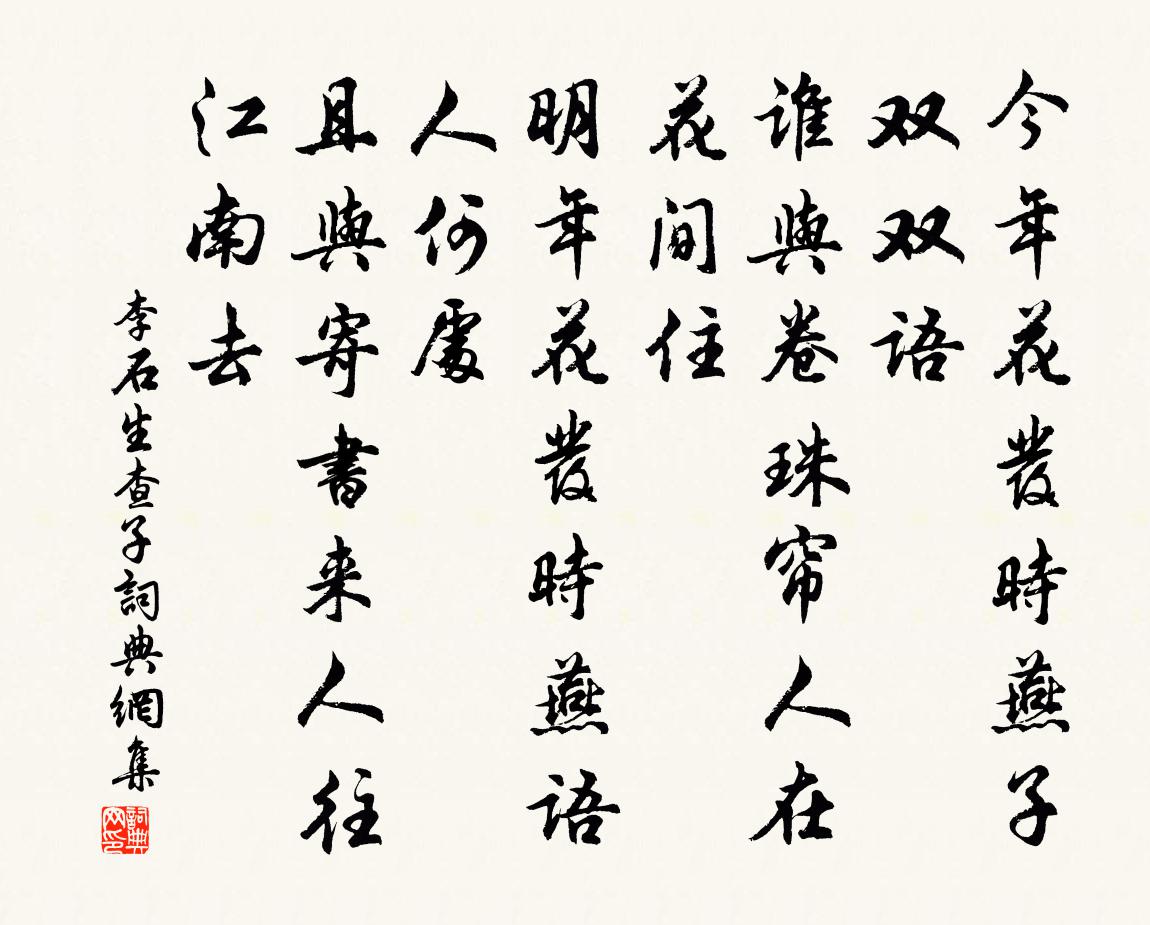 今年花發時燕子
双双语
谁與卷珠帘人在
花间住
明年花發時燕語
人何處
且與寄書来人往
江南去
李石生查子詞典網集
詞典网印